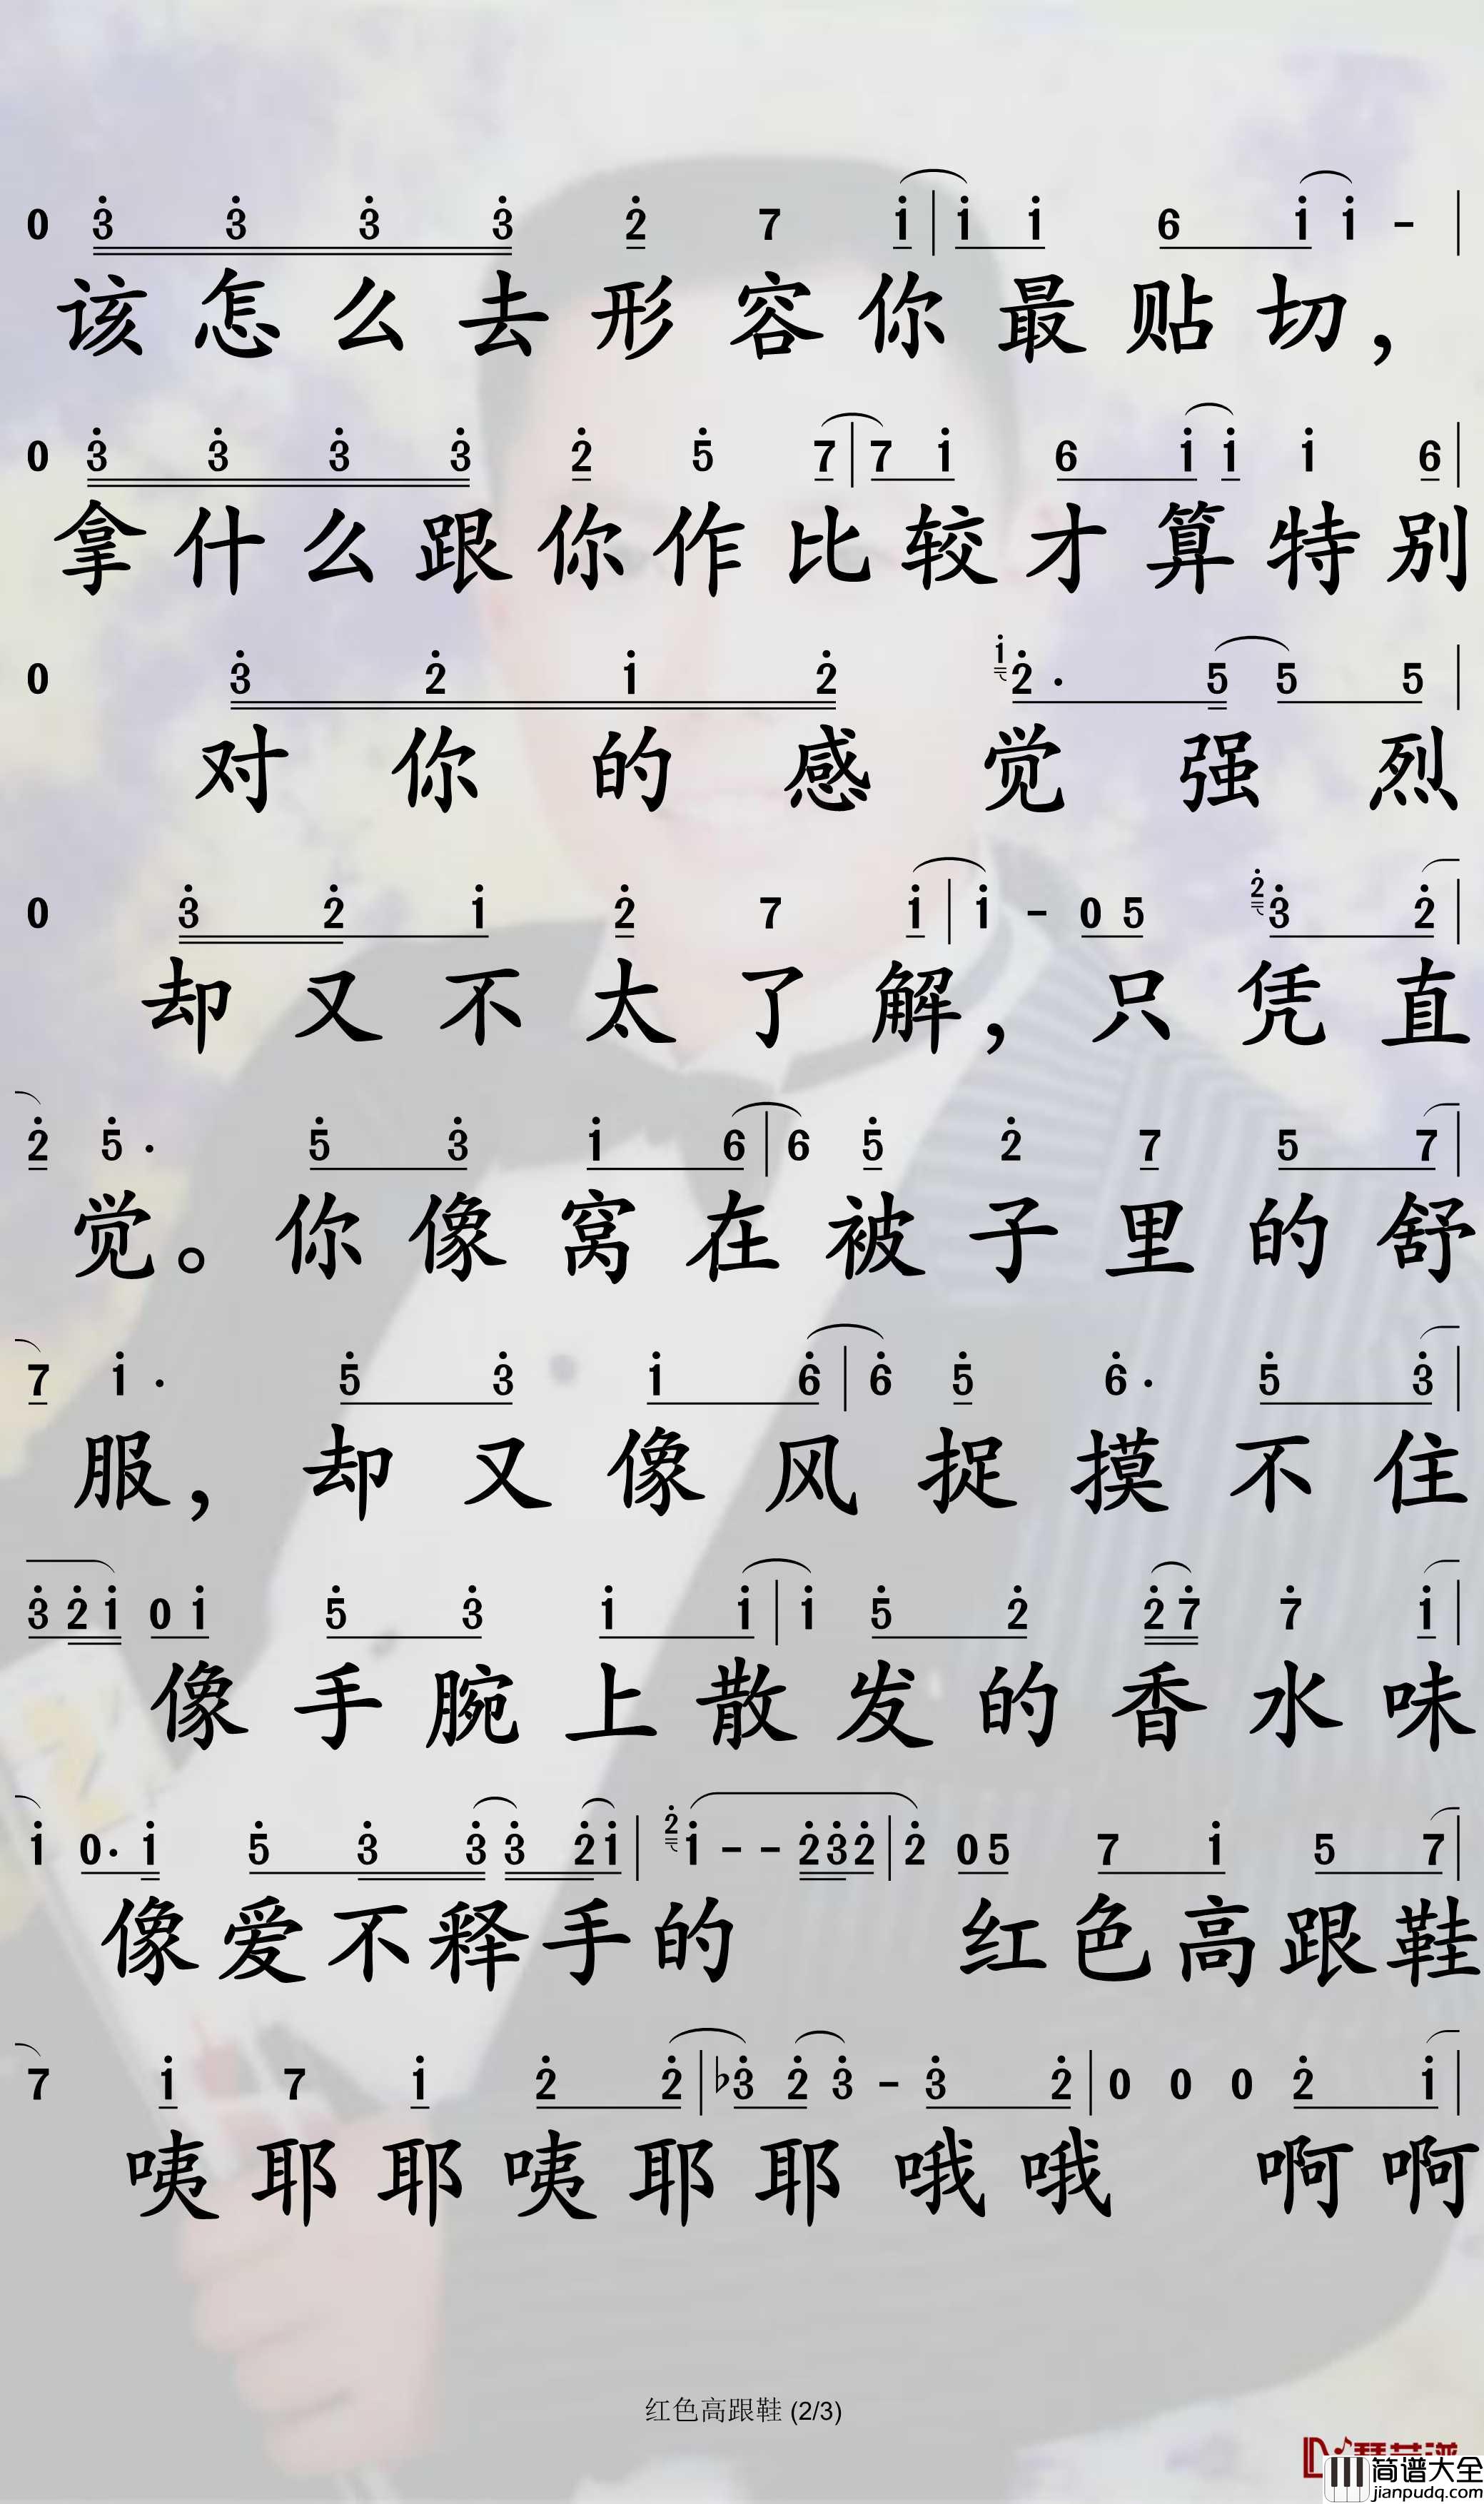 0 3 3 3 3 2 7 i | i i 6 i i - |
该怎么去形容你最贴切，
0 3 3 3 3 2 5 7 | 7 i 6 i i i 6 |
拿什么跟你作比较才算特别
0 3 2 i 2 i 2· 5 5 5 |
对你的感觉强烈
0 3 2 i 2 7 i | i - 0 5 2 3 2 |
却又不太了解，只凭直
2 5· 5 3 i 6 | 6 5 2 7 5 7 |
觉。你像窝在被子里的舒
7 i· 5 3 i 6 | 6 5 6· 5 3 |
服，却又像风捉摸不住
3 2 i 0 i 5 3 i i | i 5 2 2 7 7 i |
像手腕上散发的香水味
i 0· i 5 3 3 3 2 i | 2 i - - 2 3 2 | 2 0 5 7 i 5 7 |
像爱不释手的 红色高跟鞋
7 i 7 i 2 2 | ♭3 2 3 - 3 2 | 0 0 0 2 i |
咦耶耶咦耶耶哦哦 啊啊
红色高跟鞋 (2/3)
简谱大全
jianpudq.com